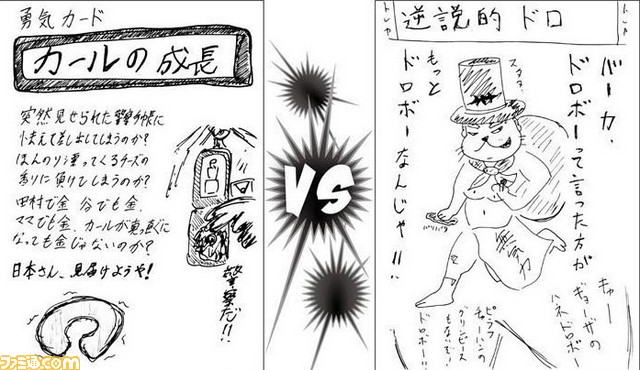 勇気カード
カールの成長
突然見せられた警察手帳に
怯えて差し出してしまうのか?
ほんのり漂ってくるチーズの
香りに負けてしまうのか?
田村で金 谷でも金
ママでも金、カールが真っ直ぐに
なっても金じゃないのか?
日本さん、見届けようや!
警察だ!!
VS
逆説的 ドロ
バーカ、
ドロボーって言った方が
もっと
ドロボーなんじゃ!!
スタタ
バリバリ
キャー
ギョーザの
ハネドロボー
ピラフ
チャーハンの
グリンピース
ドロボー!!
ファミ通.com